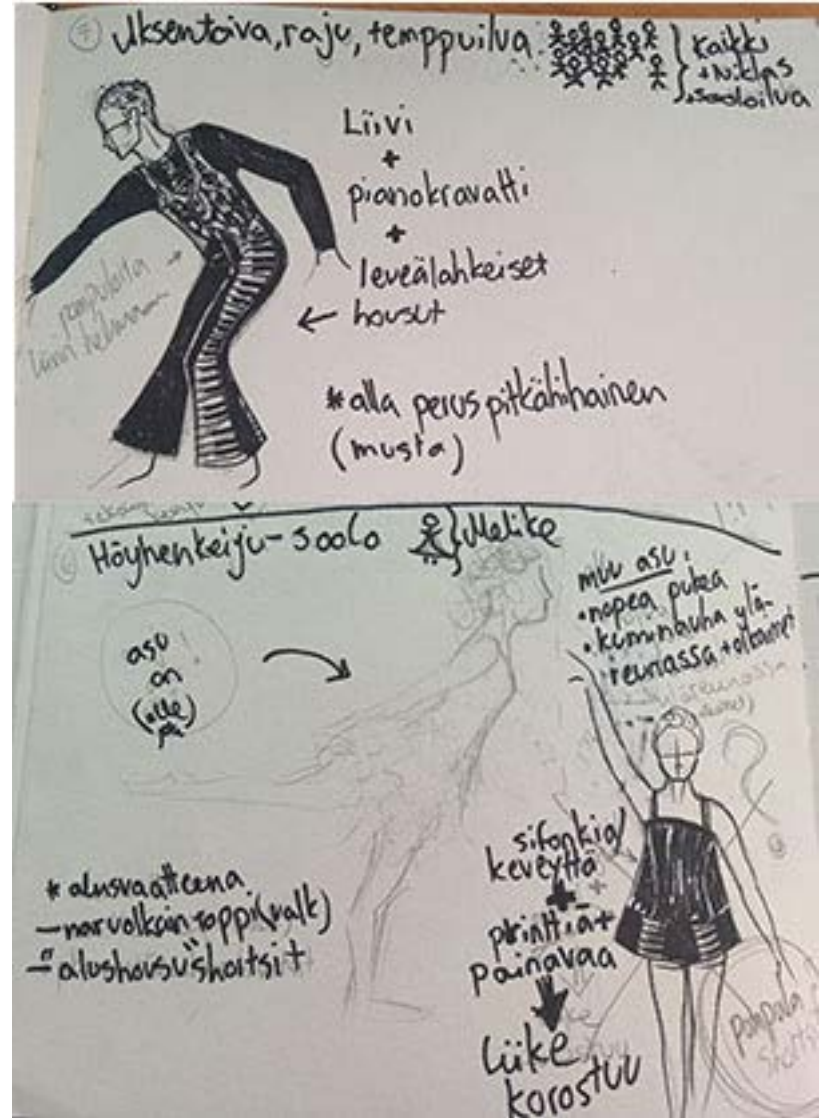 ⑦ Uksentoiva, raju, temppuilua
Kaikki
+ Niklas
sooloilua
Liivi
+
pianokravatti
+
leveälahkeiset
← housut
*alla perus pitkähihainen
(musta)
Höyhenkeiju-soolo
Melike
asu
on
(alle
muu asu:
•nopea pukea
•kuminauha ylä-
reunassa + olkaimet
sifonkia/
keveyttä
+
printtiä+
painavaa
Liike
korostuu
* alusvaatteena
-narvolkain toppi(valk)
-"alushousu"shortsit